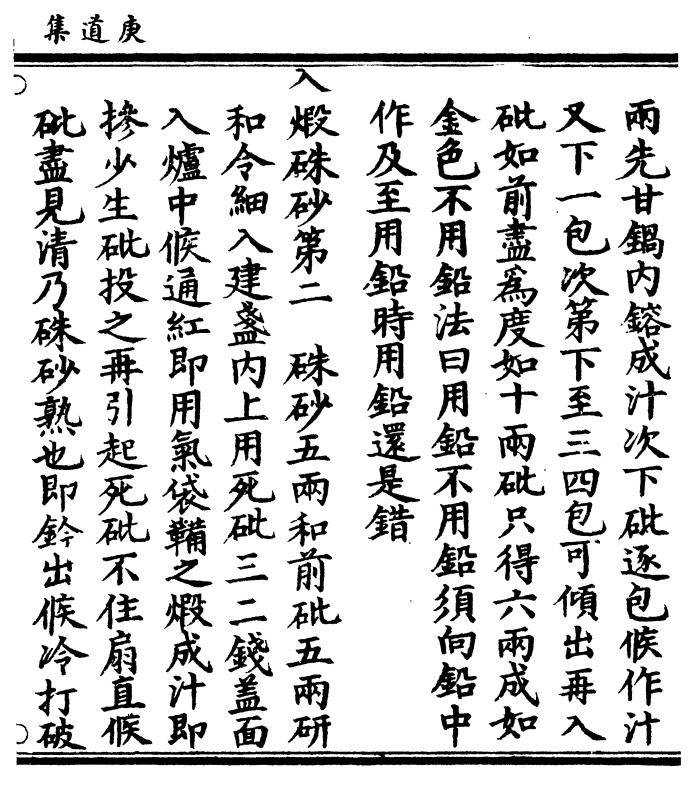 庚道集
兩先甘鍋內鎔成汁次下砒逐包候作汁
又下一包次第下至三四包可傾出再入
砒如前盡爲度如十兩砒只得六兩成如
金色不用鉛法曰用鉛不用鉛須向鉛中
作及至用鉛時用鉛還是錯
入煅硃砂第二　硃砂五兩和前砒五兩研
和令細入建盞內上用死砒三二錢盖面
入爐中候通紅即用氣袋鞴之煅成汁即
摻少生砒投之再引起死砒不住扇直候
砒盡見清乃硃砂熟也即鈐出候冷打破